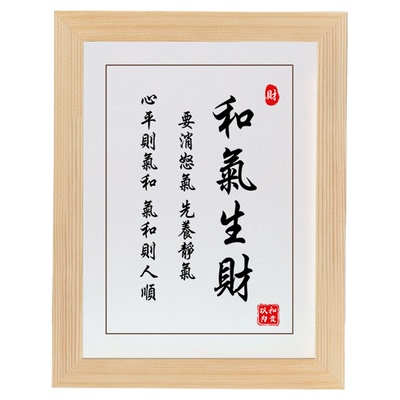 財
和氣生財
要消怒氣 先養靜氣
心平則氣和 氣和則人順
以和为贵